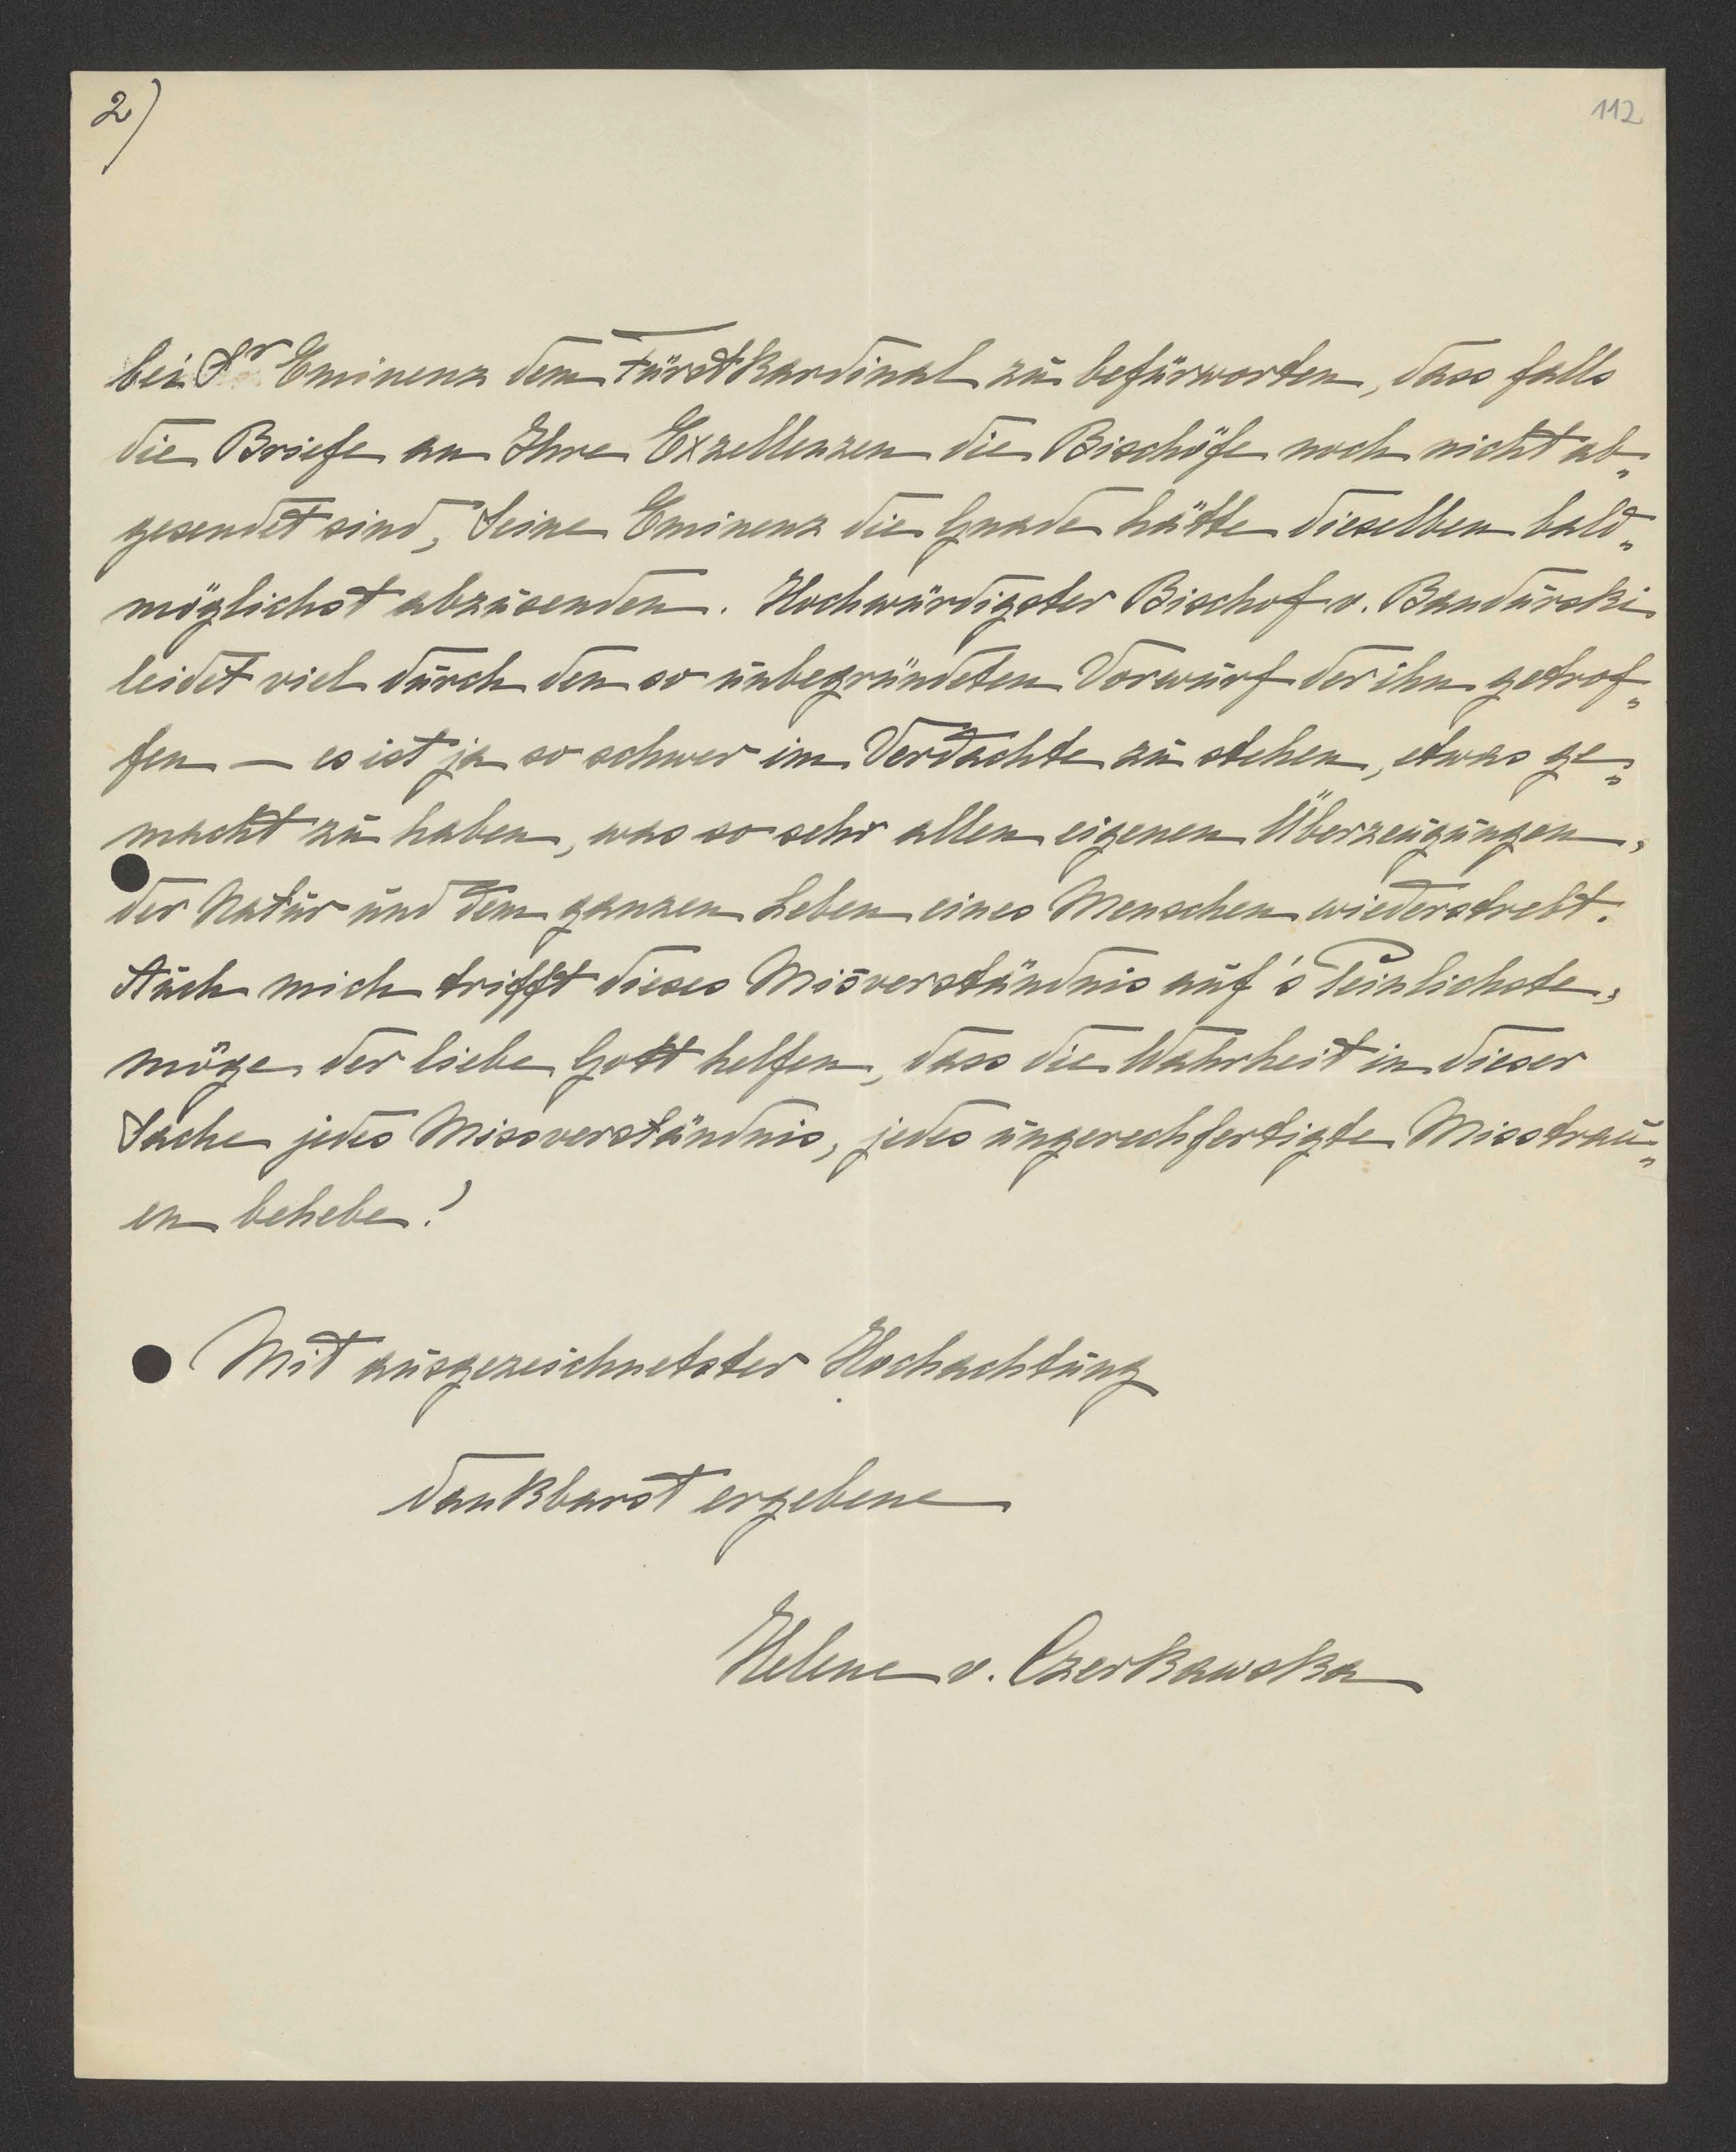 2)
112
bei Sr Eminenz dem Fürstkardinal zu befürworten, dass falls
die Briefe an Ihre Exzellenzen die Bischöfe noch nicht ab„
gesendet sind, Seine Eminenz die Gnade hätte dieselben bald„
möglichst abzusenden. Hochwürdigster Bischof v. Bandurski
leidet viel durch den so unbegründeten Vorwurf der ihn getrof„
fen — es ist ja so schwer im Verdachte zu stehen, etwas ge„
macht zu haben, was so sehr allen eigenen Überzeugungen,
der Natur und dem ganzen Leben eines Menschen wiederstrebt.
Auch mich trifft dieses Misverständnis auf's Peinlichste,
möge der liebe Gott helfen, dass die Wahrheit in dieser
Sache jedes Missverständnis, jedes ungerechfertigte Misstrau„
en behebe!
Mit ausgezeichnetster Hochachtung
dankbarst ergebene
Helene v. Czerkawska